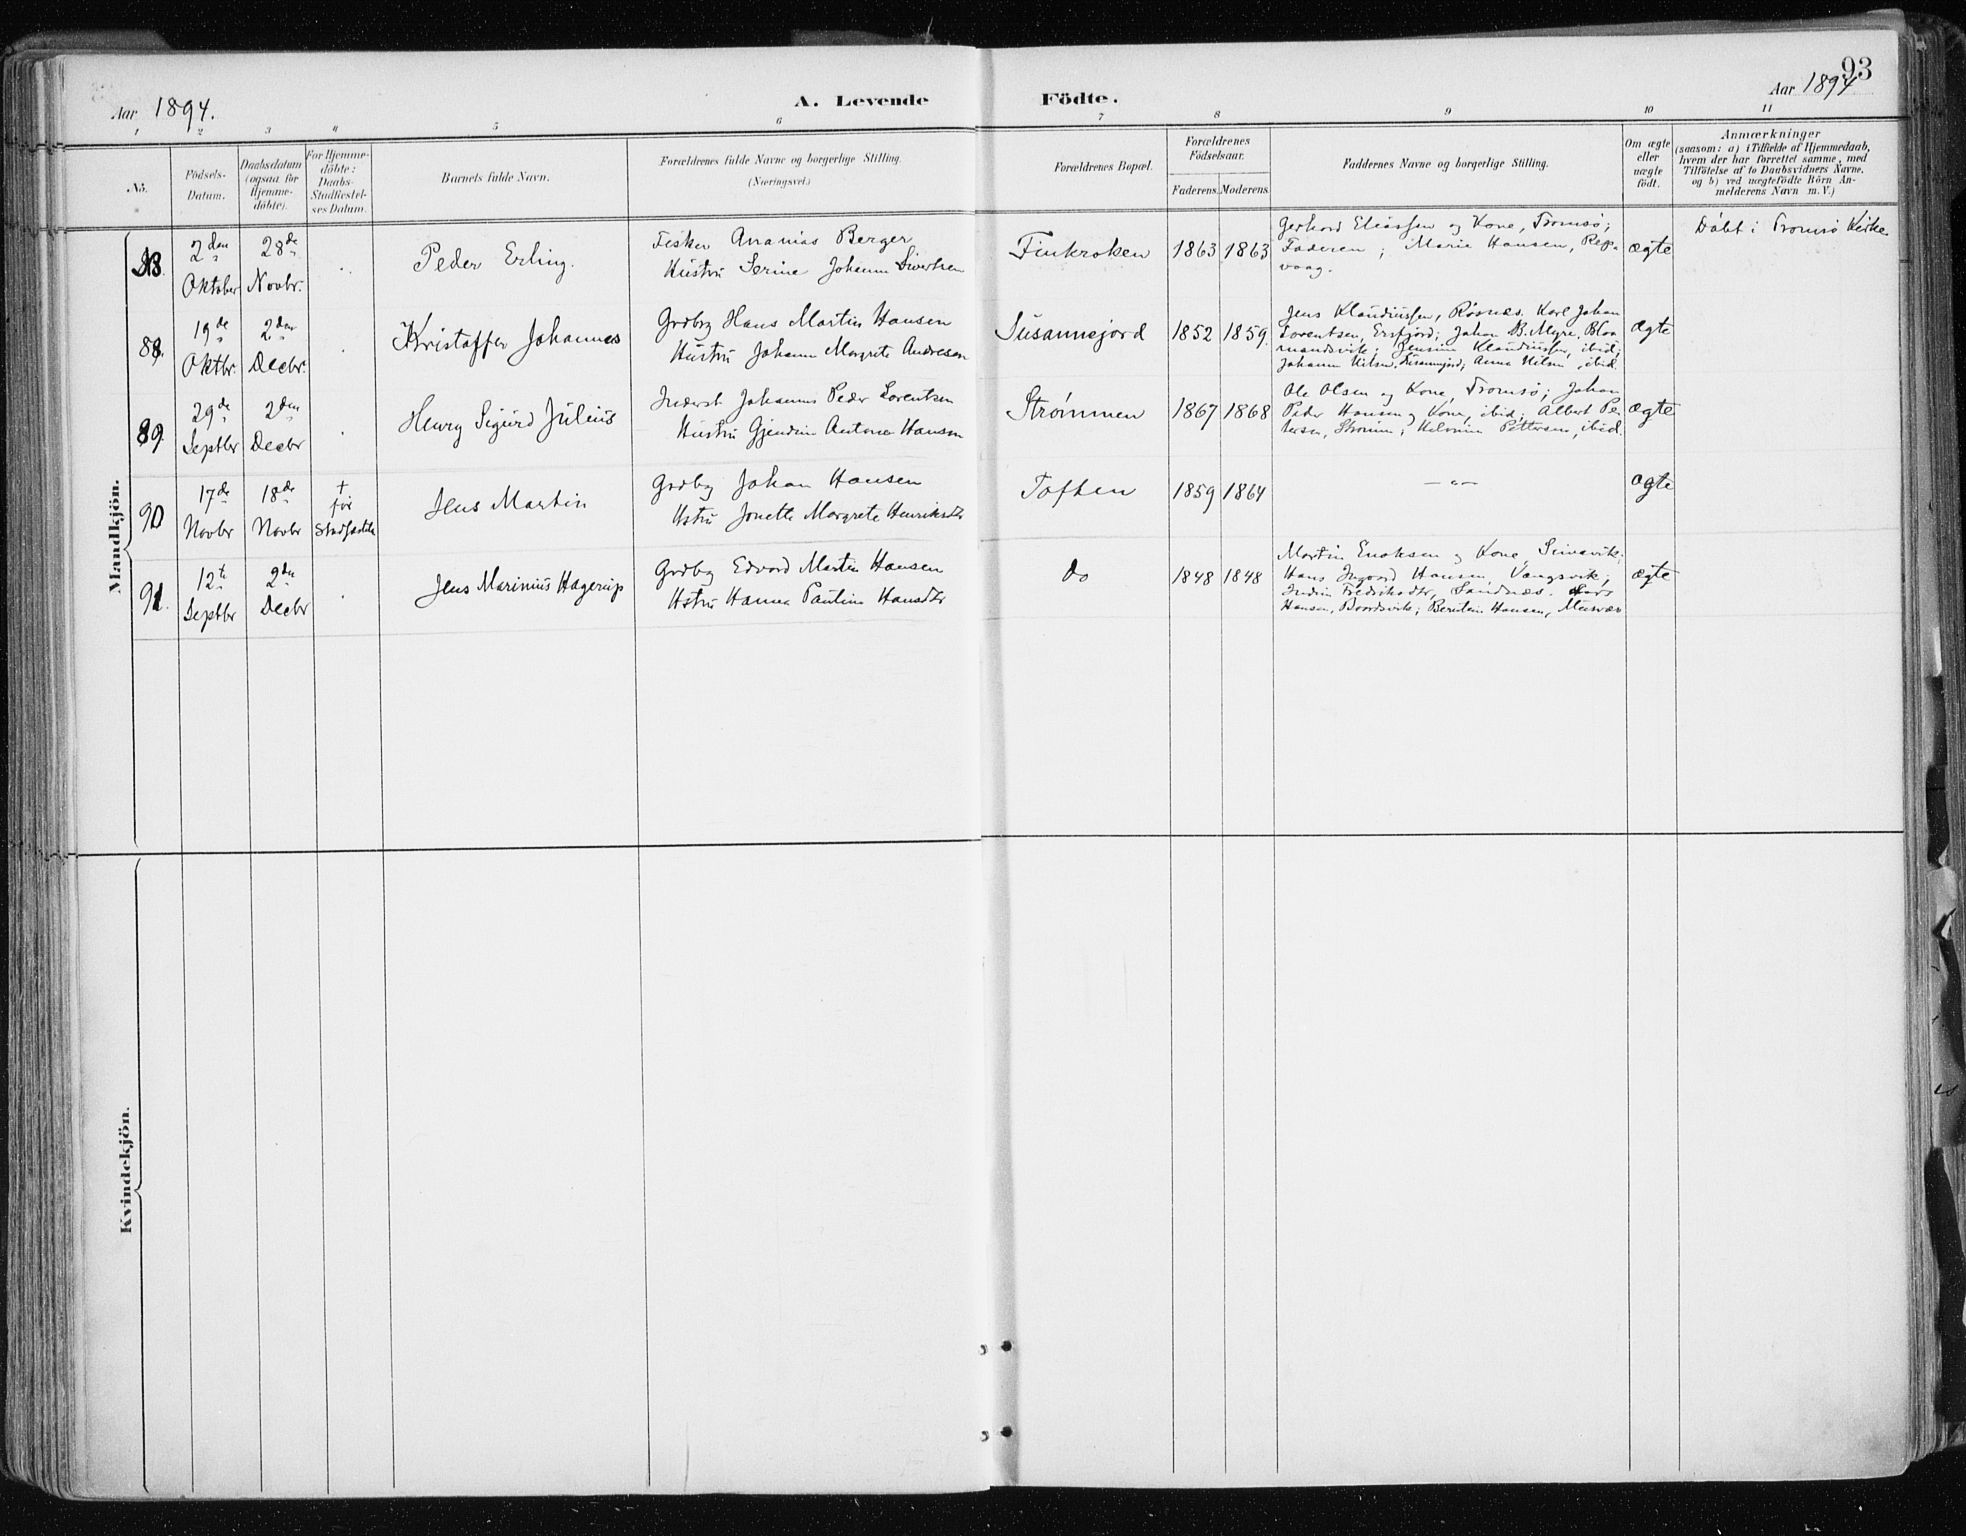 93
Aar 1894.
A. Levende Födte.
Aar 1894
1 2 3 4 5 6 7 8 9 10 11
No.
Födsels-Datum.
Daabsdatum (ogsaa for Hjemme-döbte).
For Hjemme-döbte: Daabs-Stadfæstel-ses Datum.
Barnets fulde Navn.
Forældrenes fulde Navne og borgerlige Stilling.
(Næringsvei.)
Forældrenes Bopæl.
Forældrenes Födselsaar.
Faderens. Moderens.
Faddernes Navne og borgerlige Stilling.
Om ægte eller uægte födt.
Anmærkninger
(saasom: a) i Tilfælde af Hjemmedaab, hvem der har forrettet samme, med Tilföielse af to Daabsvidners Navne, og b) ved uægtefödte Börn Anmelderens Navn m. V.)
Mandkjön.
2den Oktober
28de Novbr.
Peder Erling.
Fisker Ananias Berger
Hustru Serine Johanna Sivertsen
Finkroken
1863 1863
Gerhard Eliassen og Kone, Tromsö;
Faderen; Marie Hansen, Rep-
vaag.
ægte
Döbt i Tromsö Kirke.
88.
19de Oktbr.
2den Decbr.
Kristoffer Johannes
Grdbr Hans Martin Hansen
Hustru Johanna Margrete Andresen
Susannejord
1852 1859.
Jens Klaudiussen, Røvnes. Karl Johan
Lorentsen, Ersfjord; Johan B. Myre, Blaa-
mandsvik; Jensine Klaudiussen, ibid;
Johanna Nilsen, Susannejord; Anna Nilsen, ibid.
ægte
89
29de Septbr
2den Decbr
Henry Sigurd Julius
Inderst Johannes Peder Lorentsen
Hustru Gjendine Antona Hansen
Strømmen
1867 1868
Ole Olsen og Kone, Tromsø; Johan
Peder Hansen og Kone, ibid; Albert Pe-
tersen, Strømm; Pettersen, ibid.
ægte
90
17de Novbr
18de Novbr
† för Stadfæstelse
Jens Martin
Grdbr Johan Hansen
Hstru Jonette Margrete Henriksdtr
Toften
1859 1864
— " —
ægte
91.
12te Septbr
2den Decbr
Jens Marinius Hagerup
Grdbr Edvard Martin Hansen
Hstru Hanna Pauline Hansdtr
do
1848 1848
Martin Enoksen og Kone, Simavik;
Hans Ingvard Hansen, Vangsvik;
Indrine Fredriksdtr, Sandnæs. Lars
Hansen, Baardsvik; Berntine Hansen, Musvær
ægte
Kvindekjön.